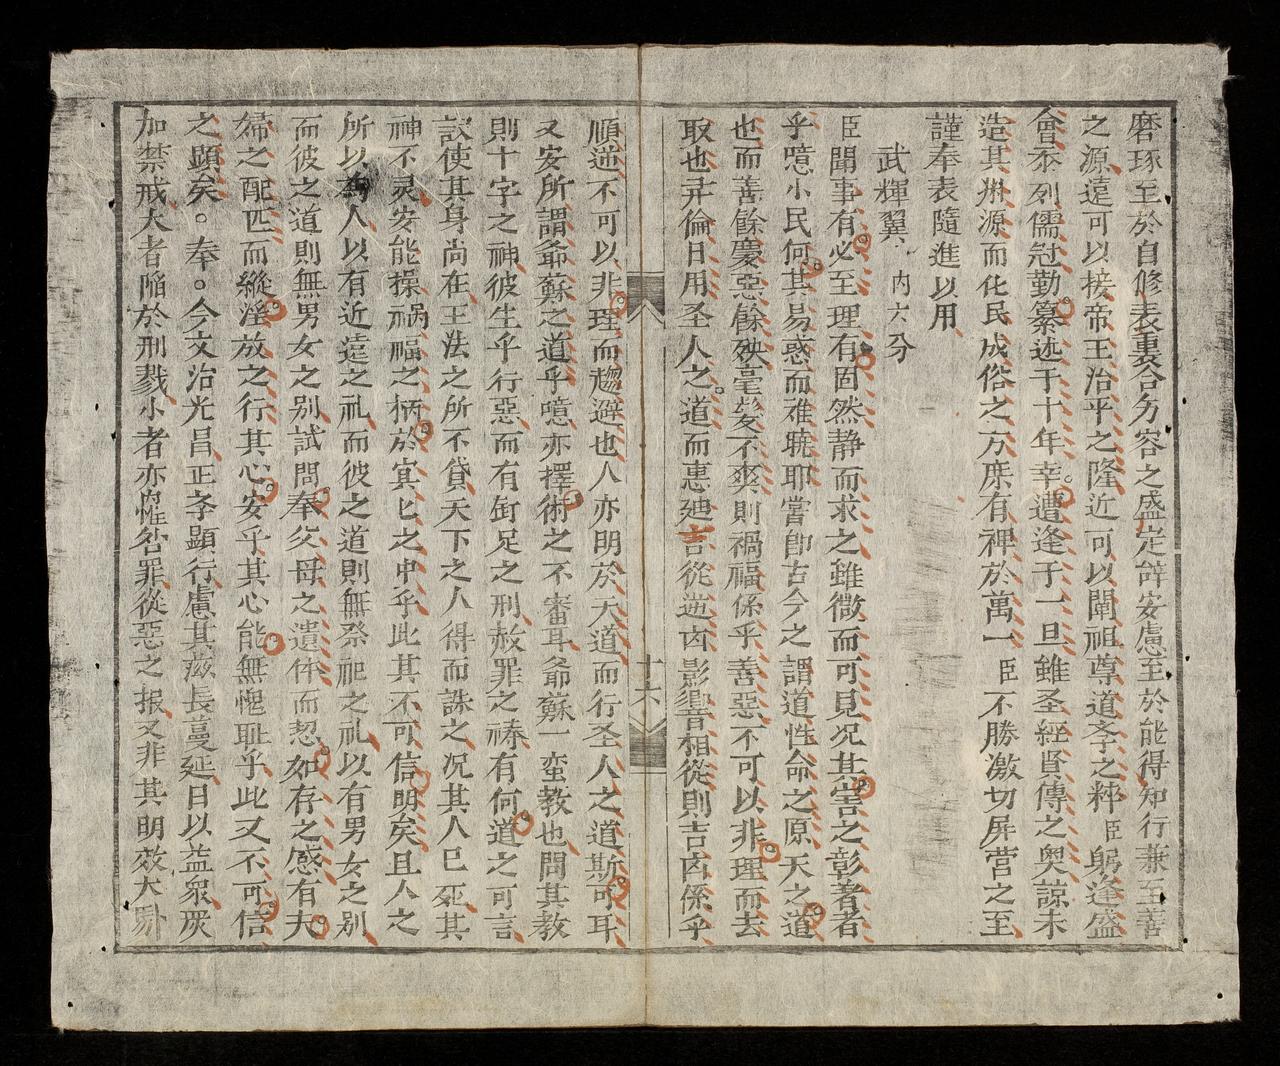 磨琢至於自修表裏合分容之盛定辞安慮至於能得知行兼至善
之源遠可以接帝王治平之隆近可以闡祖尊道斈之粹臣躬逢盛
會忝列儒冠勤纂述于十年幸遭逢于一旦雖圣經賢傳之奥諒未
造其淵源而化民成俗之方庶有裨於萬一臣不勝激切屏营之至
謹奉表隨進以用
武輝翼 内六分
臣聞事有必至理有固然静而求之雖微而可見况其害之彰著者
乎噫小民何其易惑而难曉耶嘗即古今之謂道性命之原天之道
也而善餘慶惡餘殃毫髮不爽則禍福係乎善惡不可以非理而去
取也彛倫日用圣人之道而惠廸吉從逆凶影響相從則吉凶係乎
十六
順逆不可以非理而趨避也人亦明於天道而行圣人之道斯可耳
又安所謂爺蘇之道乎噫亦擇術之不審耳爺蘇一蛮教也問其教
則十字之神彼生乎行惡而有釘足之刑赦罪之祷有何道之可言
設使其身尚在王法之所不貸天下之人得而誅之况其人已死其
神不灵安能操禍福之柄於㝠匕之中乎此其不可信明矣且人之
所以為人以有近遠之礼而彼之道則無祭祀之礼以有男女之别
而彼之道則無男女之别試問奉父母之遺体而恝如存之感有夫
婦之配匹而縱淫放之行其心安乎其心能無愧耻乎此又不可信
之顕矣。奉。今文治光昌正斈顕行慮其滋長蔓延日以益衆灰
加禁戒大者陥於刑戮小者亦惟咎罪從惡之报又非其明效大騐